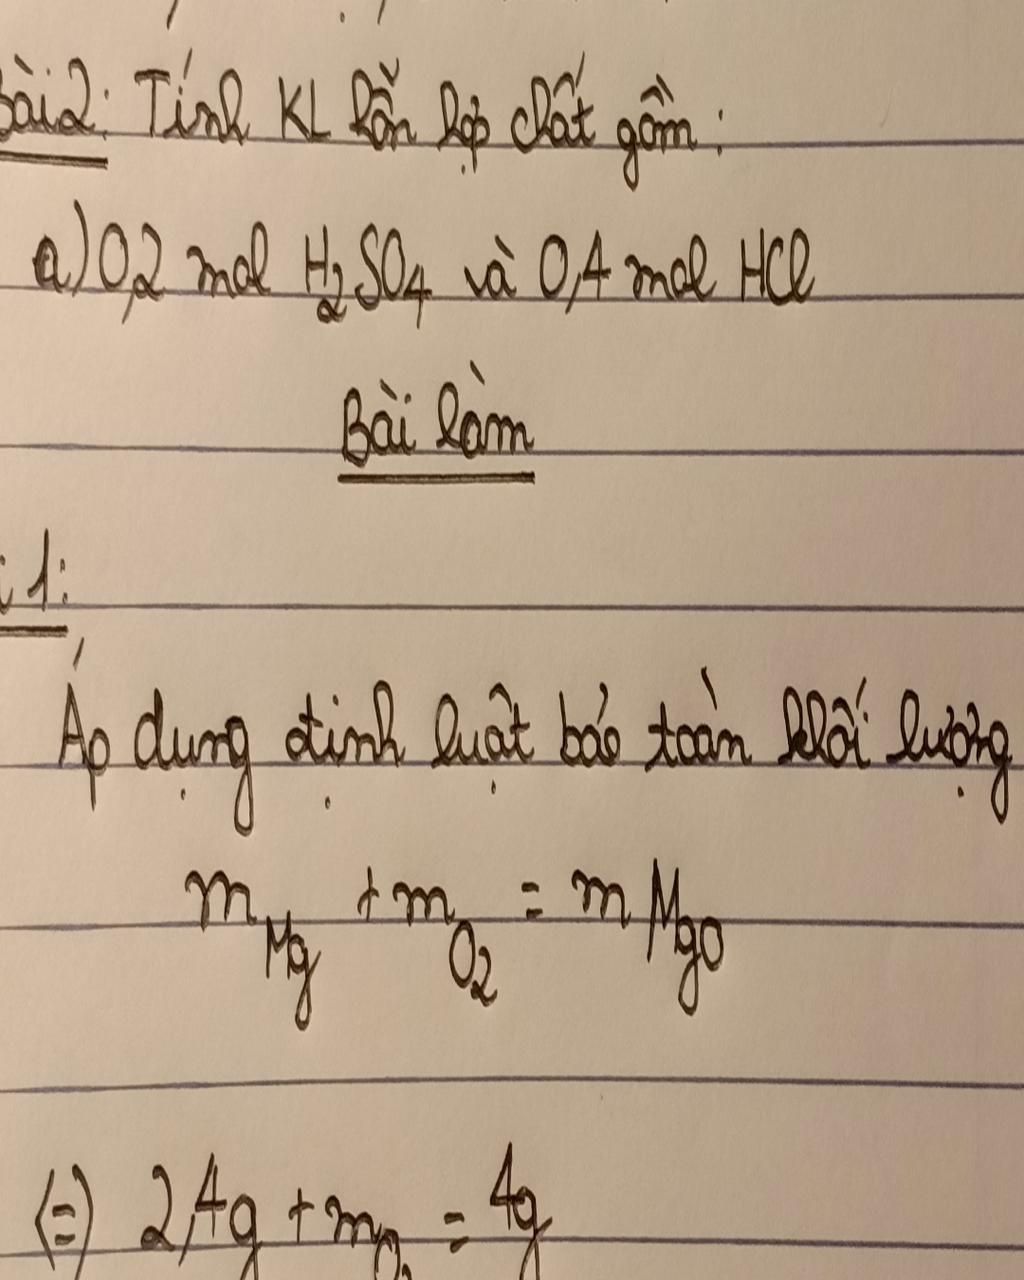 Bài 2: Tính KL hỗn hợp chất gồm:
a) 0,2 mol H₂SO₄ và 0,4 mol HCl
Bài làm
i 1:
Áp dụng định luật bảo toàn khối lượng
m Mg + m O₂ = m MgO
(=) 2,4g + m O₂ = 4g